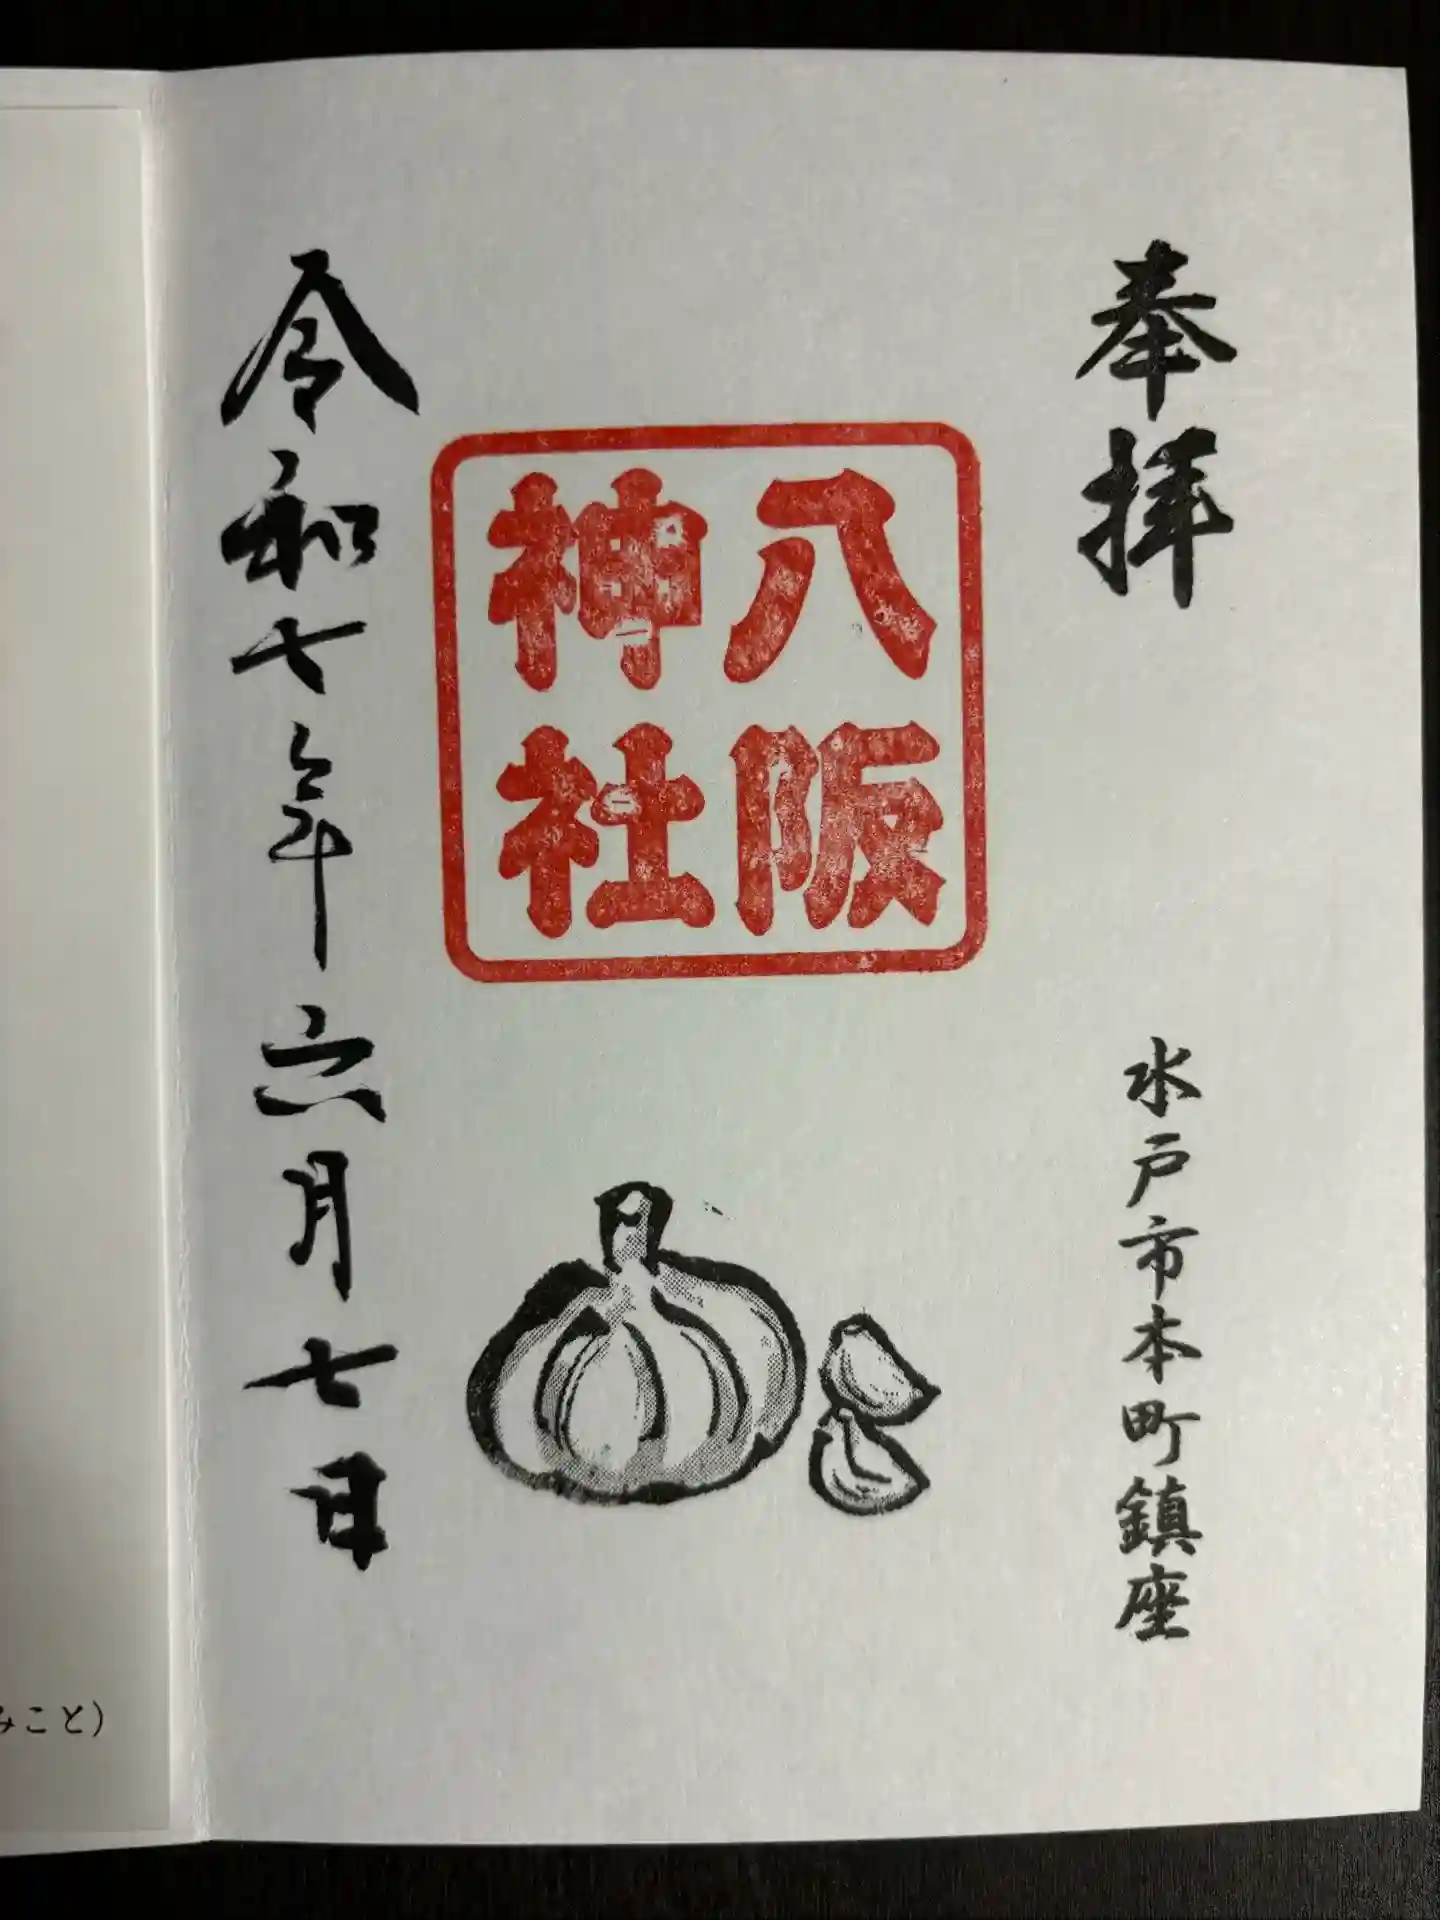 奉拝
水戸市本町鎮座
八阪
神社
令和七年六月七日
みこと）